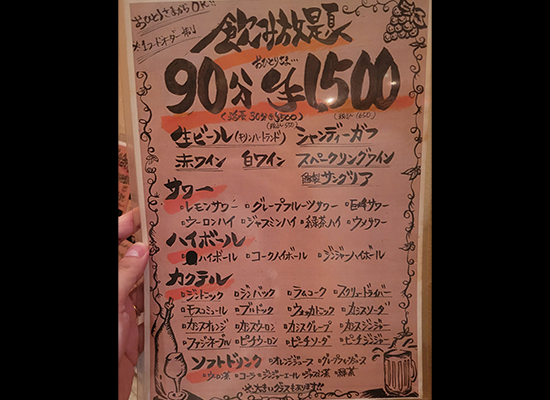 おひとりさまからOK!!
※1フードオーダー制
飲み放題
おひとりさま…
90分 ¥1500
(延長30分¥500)
(税込¥550) (税込¥1650)
生ビール(キリンハートランド) シャンディーガフ
赤ワイン 白ワイン スパークリングワイン
自家製サングリア
サワー
レモンサワー グレープフルーツサワー 巨峰サワー
ウーロンハイ ジャスミンハイ 緑茶ハイ ウメサワー
ハイボール
ハイボール コークハイボール ジンジャーハイボール
カクテル
ジントニック ジンバック ラムコーク スクリュードライバー
モスコミュール ブルドック ウォッカトニック カシスソーダ
カシスオレンジ カシスウーロン カシスグレープ カシスジンジャー
ファジーネーブル ピーチウーロン ピーチソーダ ピーチジンジャー
ソフトドリンク オレンジジュース グレープフルーツジュース
ウーロン茶 コーラ ジンジャーエール ジャスミン茶 緑茶
※大きいグラスもあります!!